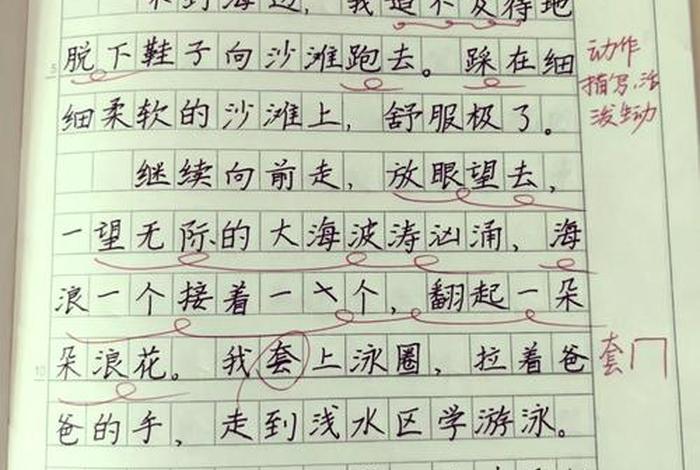 来到海边，我迫不及待地
脱下鞋子向沙滩跑去。踩在细
细柔软的沙滩上，舒服极了。
继续向前走，放眼望去，
一望无际的大海波涛汹涌，海
浪一个接着一个，翻起一朵
朵浪花。我套上泳圈，拉着爸
爸的手，走到浅水区学游泳。
动作
描写，活
泼生动
套
10